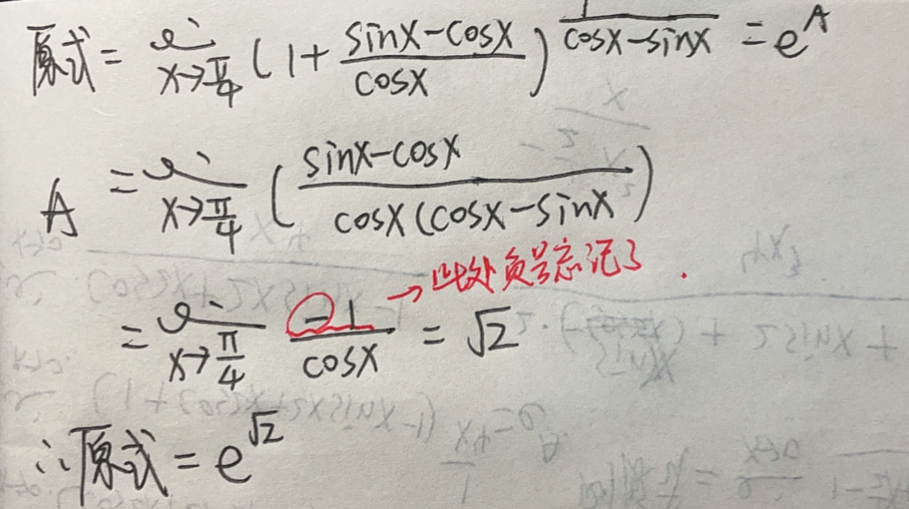 原式 = lim x→π/4 (1 + (sinx-cosx)/cosx)^(1/(cosx-sinx)) = e^A
A = lim x→π/4 ((sinx-cosx)/(cosx(cosx-sinx))
= lim x→π/4 -1/cosx = √2
→此处负号忘记了.
∴原式 = e^√2